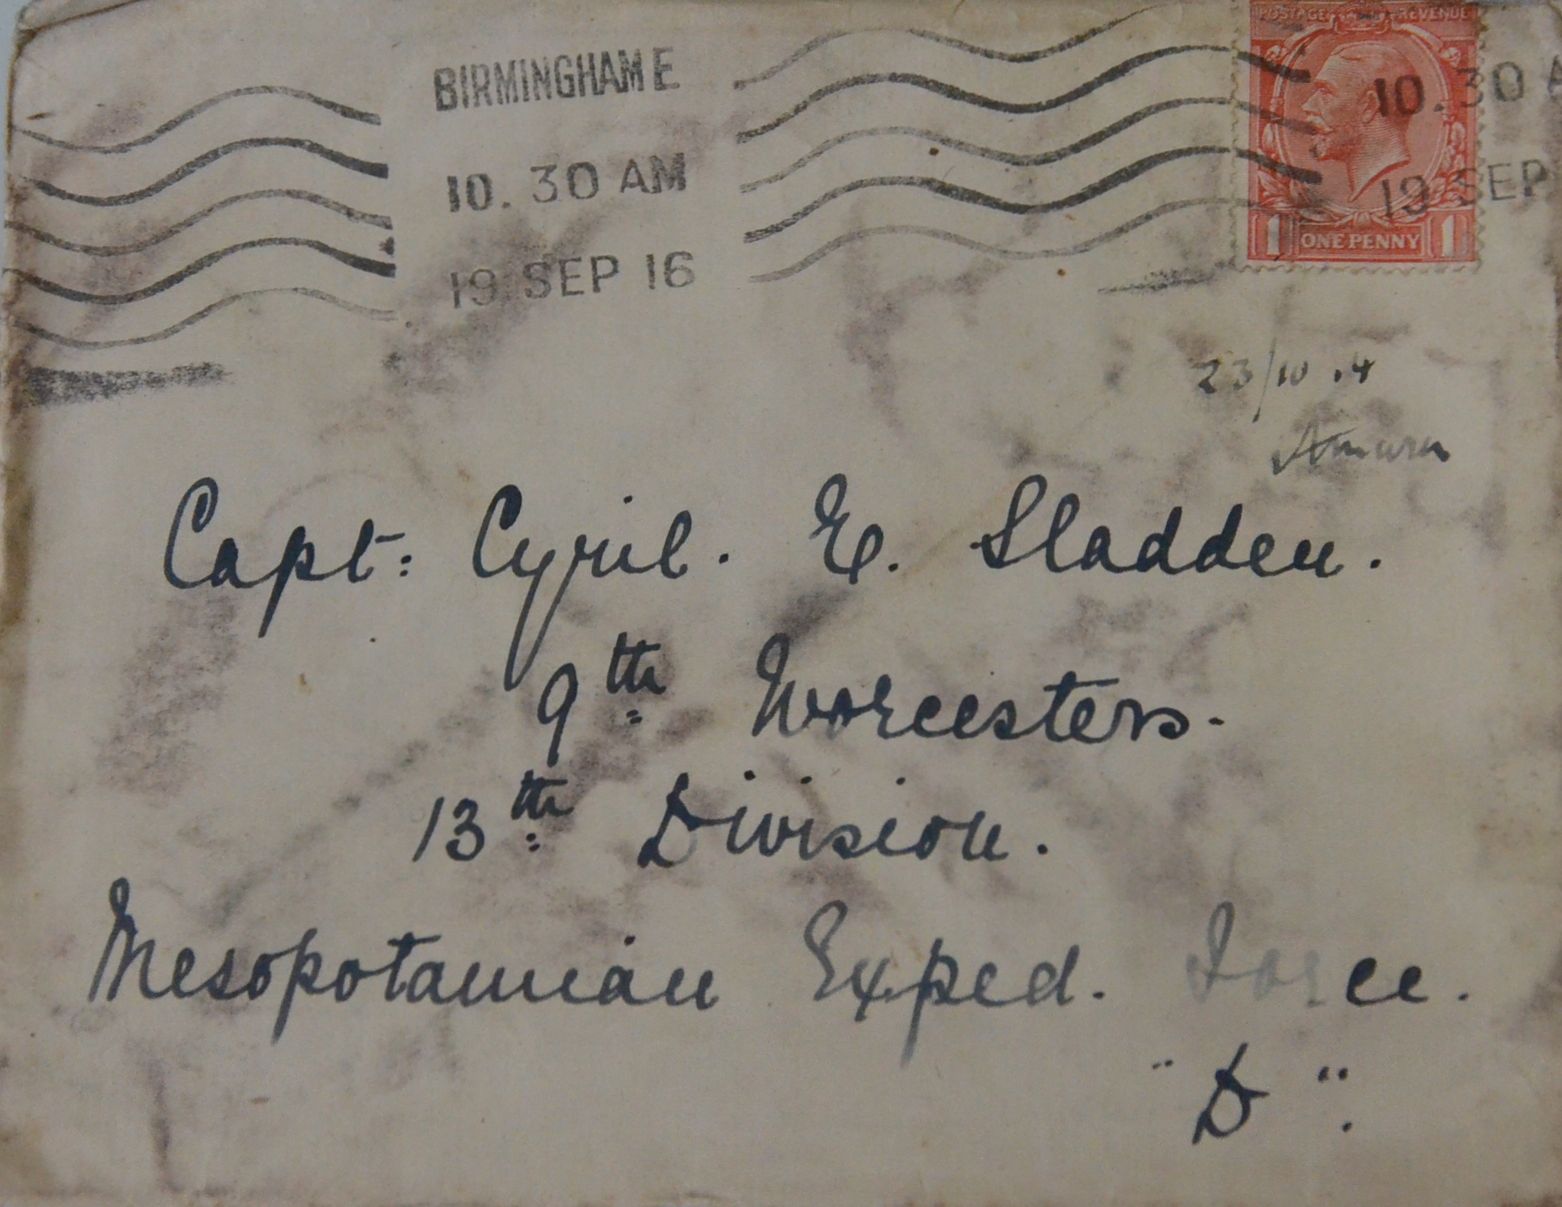 BIRMINGHAM E
10.30 AM
19 SEP 16
POSTAGE REVENUE
10.30 A
19 SEP
1 ONE PENNY 1
23/10.14
Amara
Capt: Cyril. E. Sladden.
9th Worcesters.
13th Division.
Mesopotamian Exped. Force.
"D".